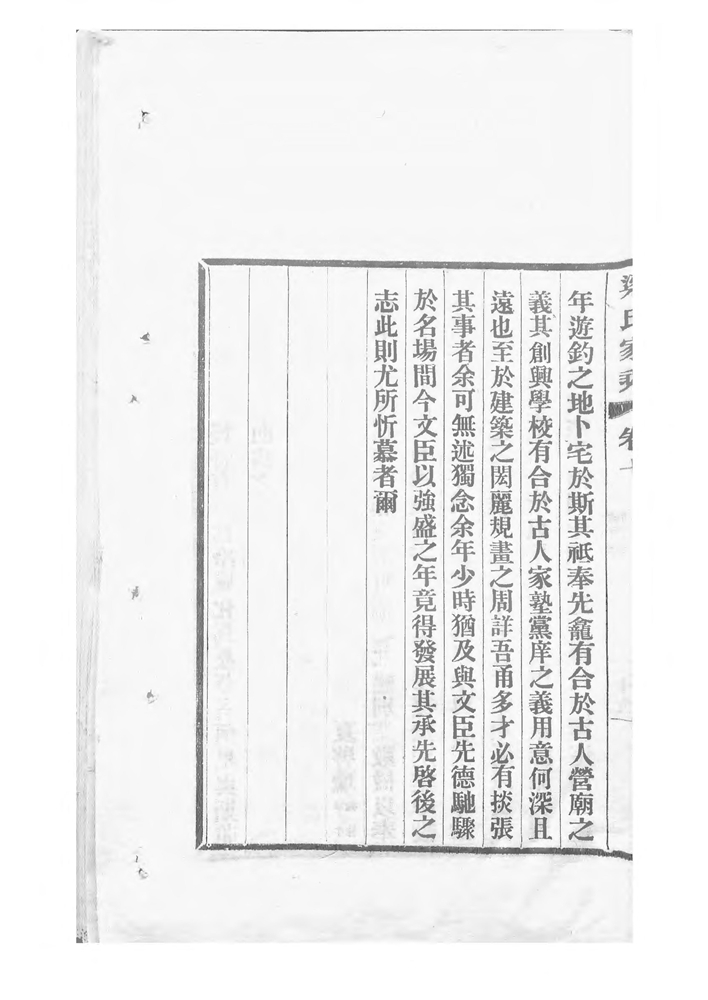 梁氏家乘 卷
年遊釣之地卜宅於斯其祗奉先龕有合於古人營廟之
義其創興學校有合於古人家塾黨庠之義用意何深且
遠也至於建築之閎麗規畫之周詳吾甬多才必有掞張
其事者余可無述獨念余年少時猶及與文臣先德馳驟
於名場間今文臣以強盛之年竟得發展其承先啓後之
志此則尤所忻慕者爾